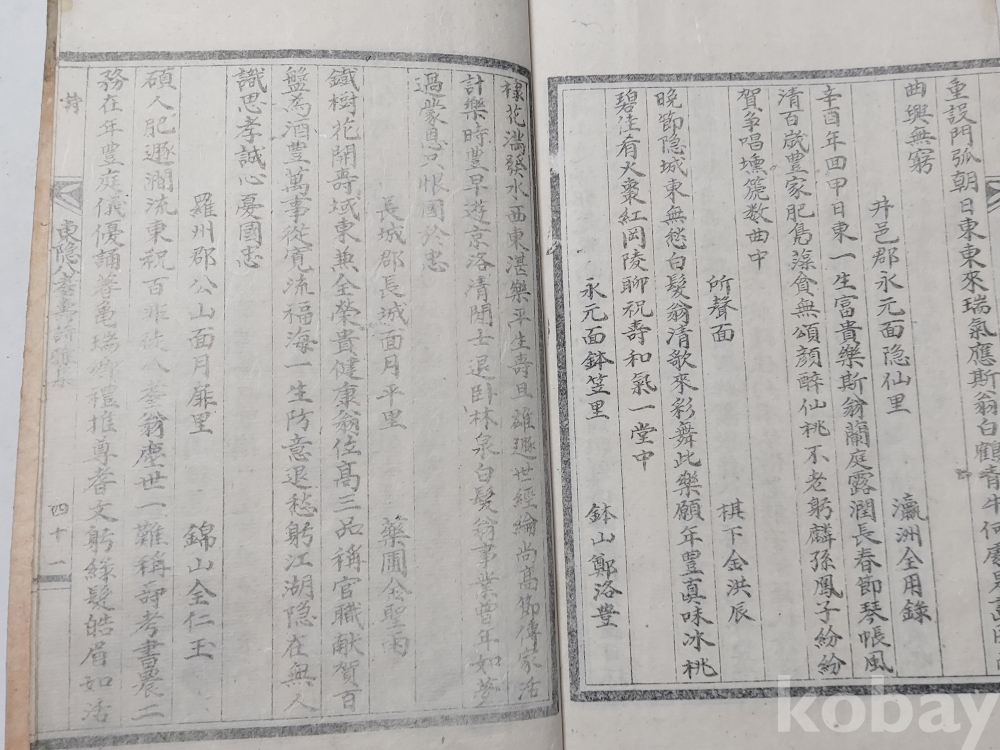 重設門弧朝日東東來瑞氣應斯翁白鶴青牛何
曲興無窮
井邑郡永元面隐仙里 瀛洲全用錄
辛酉年回甲日東一生富貴樂斯翁蘭庭露潤長春節琴帳風
清百歲豊家肥雋藻耸無頌顔醉仙桃不老躬麟孫鳳子紛紛
賀争唱壎箎数曲中
所聲面 棋下金洪辰
晚節隐城東無愁白髮翁清歌來彩舞此樂願年豊真味冰桃
碧佳肴火棗紅岡陵聊祝壽和氣一堂中
永元面鉢笠里 鉢山鄭洛豊
棣花滿發水西東湛樂平生壽旦雄遯世經綸尚高節傳家活
計樂時豊早遊京洛清閒士退卧林泉白髮翁事業曾年如夢
過蒙恩只恨國於忠
長城郡長城面月平里 藥圃金聖雨
鐵樹花開壽域東兼全榮貴健康翁位高三品稱官職献賀百
盤為酒豊萬事從寬流福海一生防意退愁躬江湖隐在無人
識思孝誠心憂國忠
羅州郡公山面月靡里 錦山全仁玉
碩人肥遯澗流東祝百 翁塵世一難稱壽考書農二
務在年豊庭儀優誦蓍亀瑞 禮推尊耆文躬綠髮皓眉如活
詩 東隐 壽詩 四十一
kobay